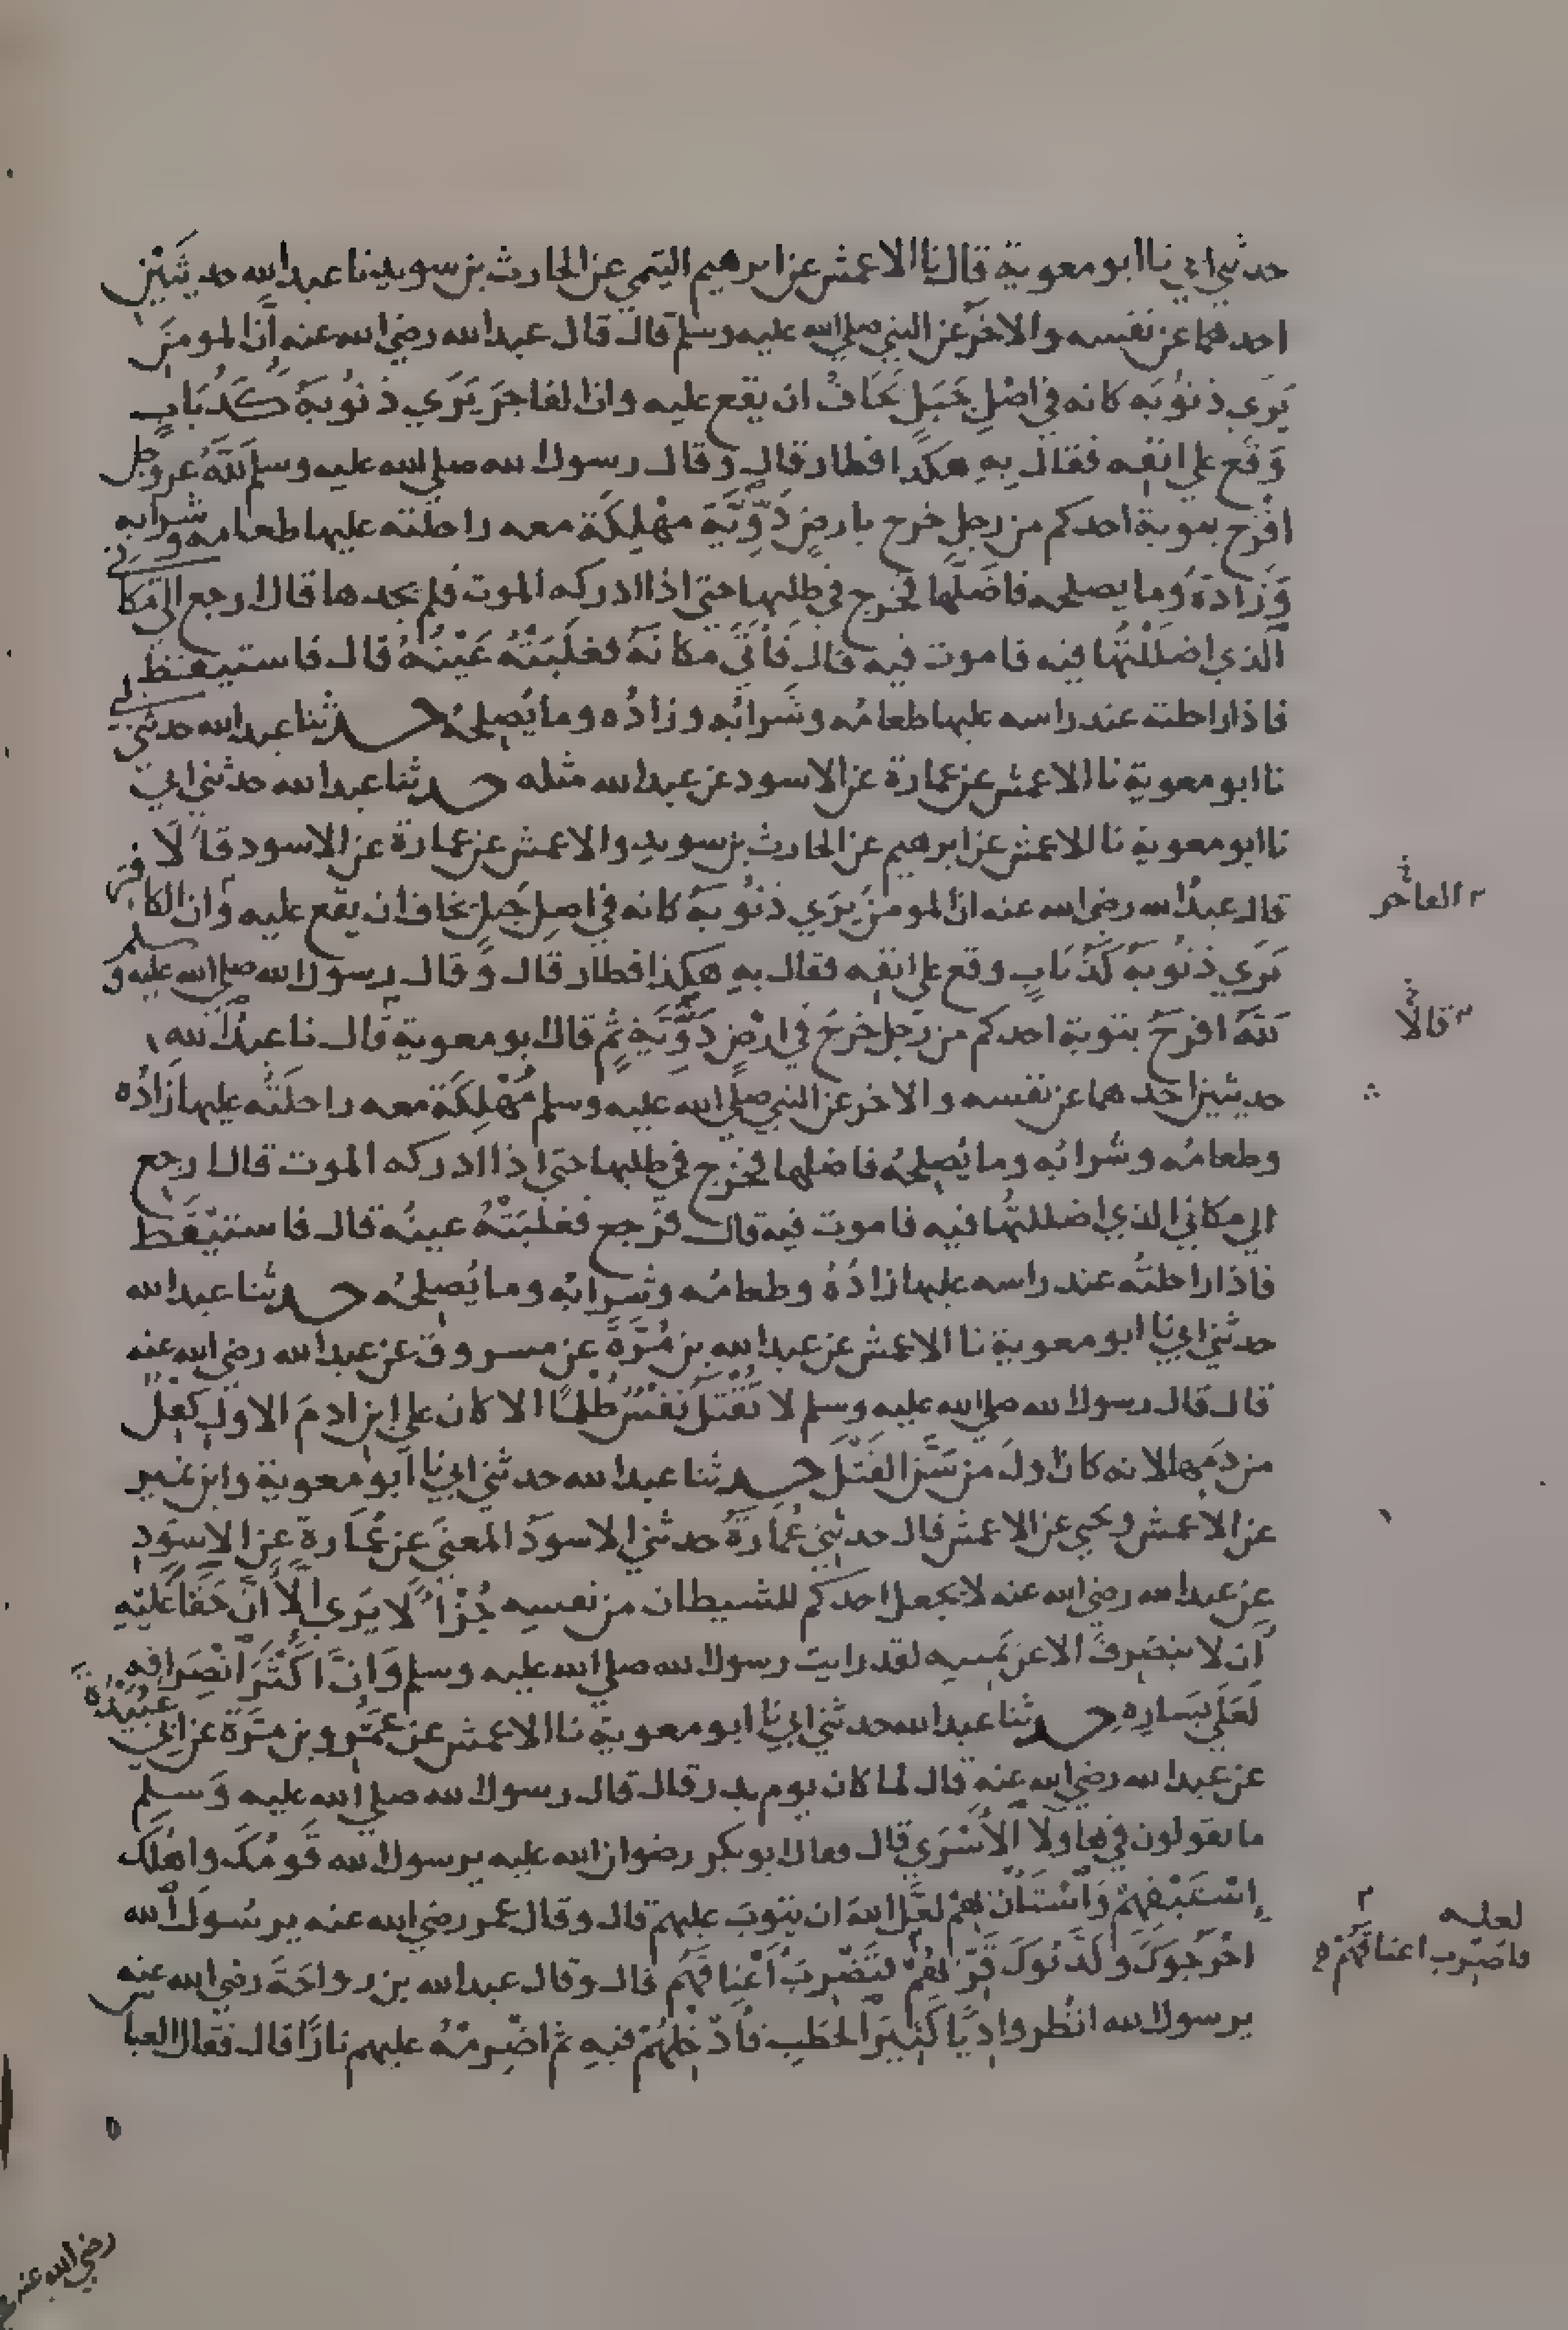 حدثني ابي نا ابو معوية قال نا الاعمش عن ابرهيم التيمي عن الحارث بن سويد نا عبد الله حديثين
احدهما عن نفسه والاخر عن النبي صلي الله عليه وسلم قال قال عبد الله رضي الله عنه ان المومن
يري ذنوبه كانه في اصل جبل يخاف ان يقع عليه وان الفاجر يري ذنوبه كذباب
وقع علي انفه فقال به هكذا فطار قال وقال رسول الله صلي الله عليه وسلم لله عز وجل
افرح بتوبة احدكم من رجل خرج بارض دوية مهلكة معه راحلته عليها طعامه وشرابه
وزاده وما يصلحه فاضلها فخرج في طلبها حتي اذا ادركه الموت فلم يجدها قال ارجع الي مكاني
الذي اضللتها فيه فاموت فيه قال فاتي مكانه فغلبته عينه قال فاستيقظ
فاذا راحلته عند راسه عليها طعامه وشرابه وزاده وما يصلحه حدثنا عبد الله حدثني ابي
نا ابو معوية نا الاعمش عن عمارة عن الاسود عن عبد الله مثله حدثنا عبد الله حدثني ابي
نا ابو معوية نا الاعمش عن ابرهيم عن الحارث بن سويد والاعمش عن عمارة عن الاسود قالا
قال عبد الله رضي الله عنه ان المومن يري ذنوبه كانه في اصل جبل يخاف ان يقع عليه وان الكافر
٢ الفاجر
يري ذنوبه كذباب وقع علي انفه فقال به هكذا فطار قال وقال رسول الله صلي الله عليه وسلم
لله افرح بتوبة احدكم من رجل خرج في ارض دوية ثم قال ابو معوية قال نا عبد الله
٣ قالا
حديثين احدهما عن نفسه والاخر عن النبي صلي الله عليه وسلم مهلكة معه راحلته عليها زاده
وطعامه وشرابه وما يصلحه فاضلها فخرج في طلبها حتي اذا ادركه الموت قال ارجع
الي مكاني الذي اضللتها فيه فاموت فيه قال فرجع فغلبته عينه قال فاستيقظ
فاذا راحلته عند راسه عليها زاده وطعامه وشرابه وما يصلحه حدثنا عبد الله
حدثني ابي نا ابو معوية نا الاعمش عن عبد الله بن مرة عن مسروق عن عبد الله رضي الله عنه
قال قال رسول الله صلي الله عليه وسلم لا تقتل نفس ظلما الا كان علي ابن ادم الاول كفل
من دمها لانه كان اول من سن القتل حدثنا عبد الله حدثني ابي نا ابو معوية وابن نمير
عن الاعمش ويحيي عن الاعمش قال حدثني عمارة حدثني الاسود المعني عن عمارة عن الاسود
عن عبد الله رضي الله عنه لا يجعل احدكم للشيطان من نفسه جزأ لا يري الا ان حقا عليه
ان لا ينصرف الا عن يمينه لقد رايت رسول الله صلي الله عليه وسلم وان اكثر انصرافه
لعلي يساره حدثنا عبد الله حدثني ابي نا ابو معوية نا الاعمش عن عمرو بن مرة عن ابي عبيدة
عن عبد الله رضي الله عنه قال لما كان يوم بدر قال قال رسول الله صلي الله عليه وسلم
ما تقولون في هاولا الاسري قال فقال ابو بكر رضوان الله عليه يرسول الله قومك واهلك
استبقهم واستان بهم لعل الله ان يتوب عليهم قال وقال عمر رضي الله عنه يرسول الله
اخرجوك وكذبوك قربهم لتضرب اعناقهم قال وقال عبد الله بن رواحة رضي الله عنه
لعله
فاضرب اعناقهم
يرسول الله انظر واديا كثير الحطب فادخلهم فيه ثم اضرمه عليهم نارا قال فقال العباس
رضي الله عنه